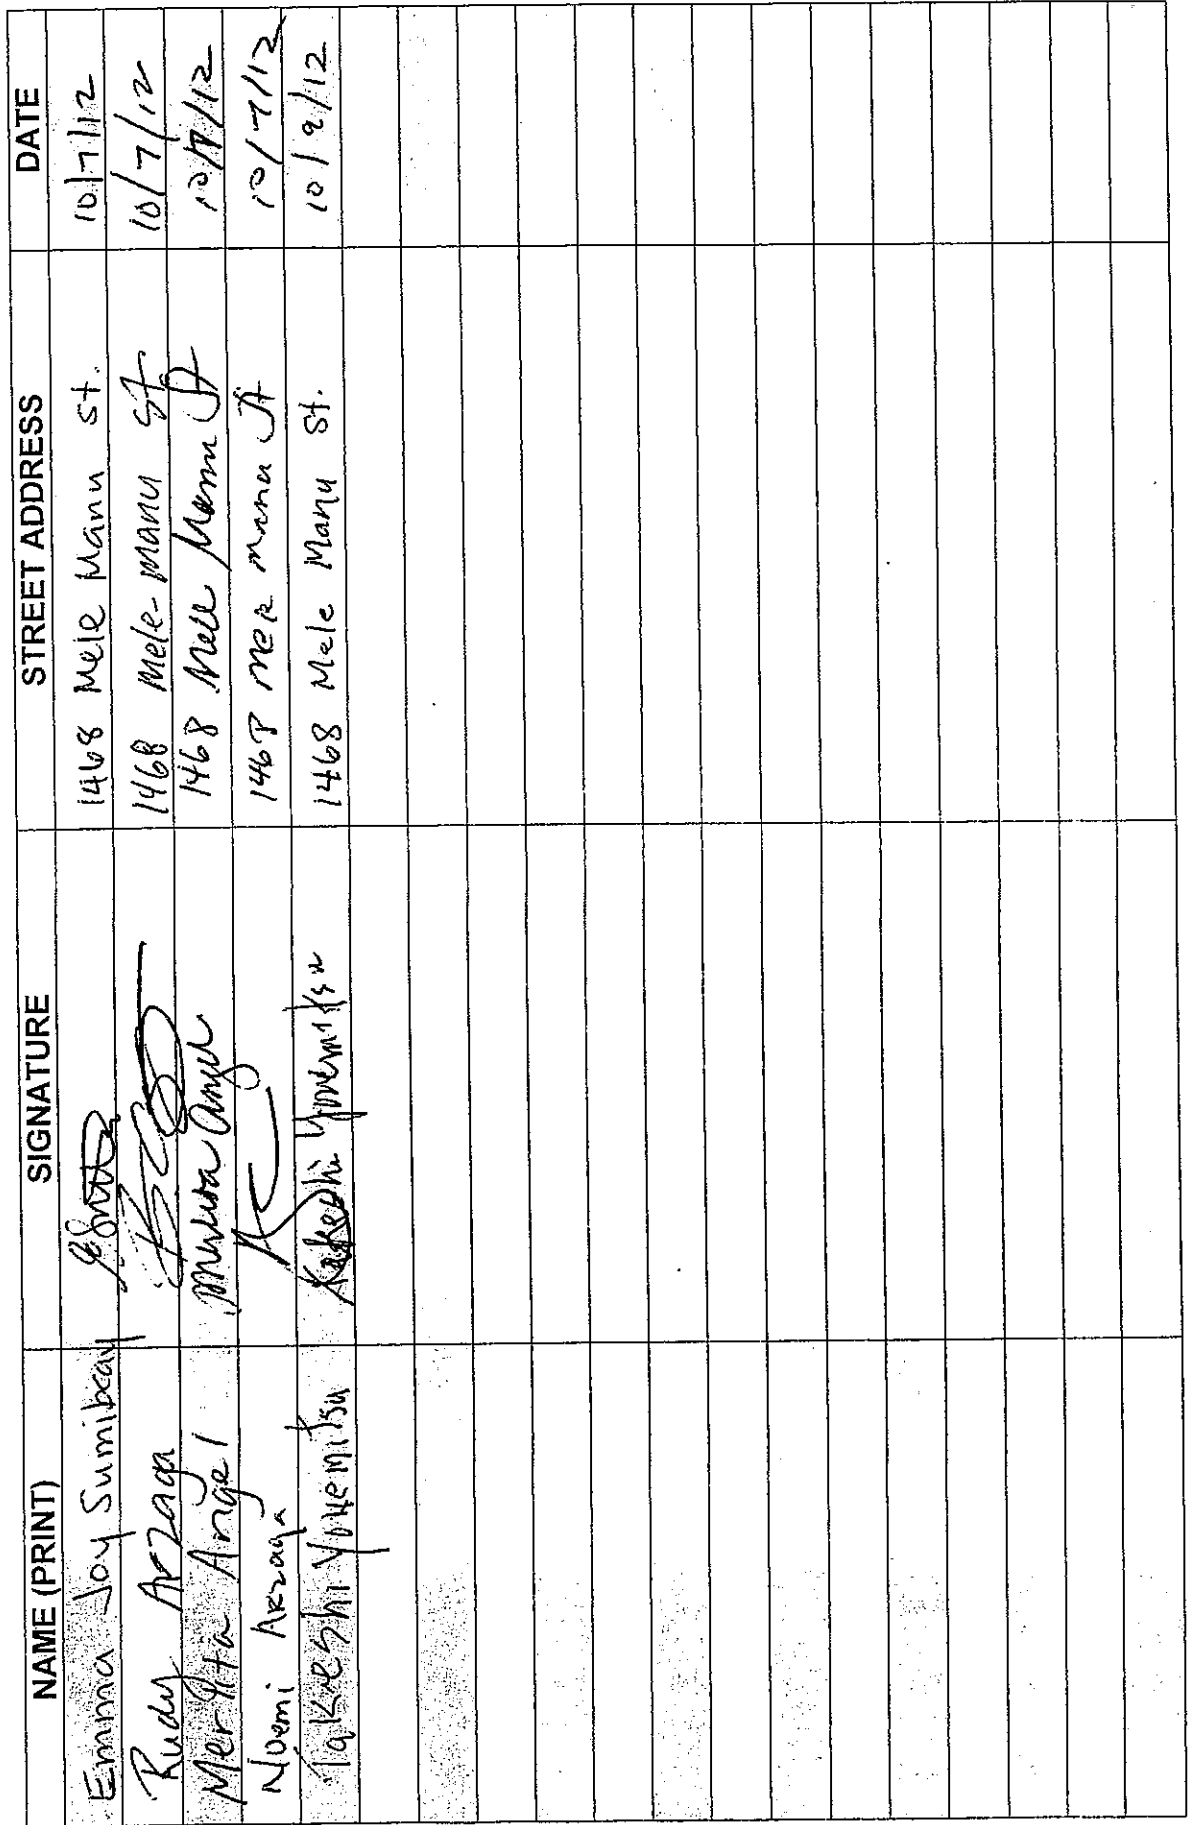 NAME (PRINT) SIGNATURE STREET ADDRESS DATE
Emma Joy Sumibcay 1468 Mele Manu St. 10/7/12
Rudy Arzaga 1468 Mele-manu St 10/7/12
Merlita Angel Angel 1468 Mele Manu St 10/7/12
Noemi Arzaga 1468 Mele Manu St 10/7/12
Takeshi Yonemitsu Takeshi Yonemitsu 1468 Mele Manu St. 10/9/12